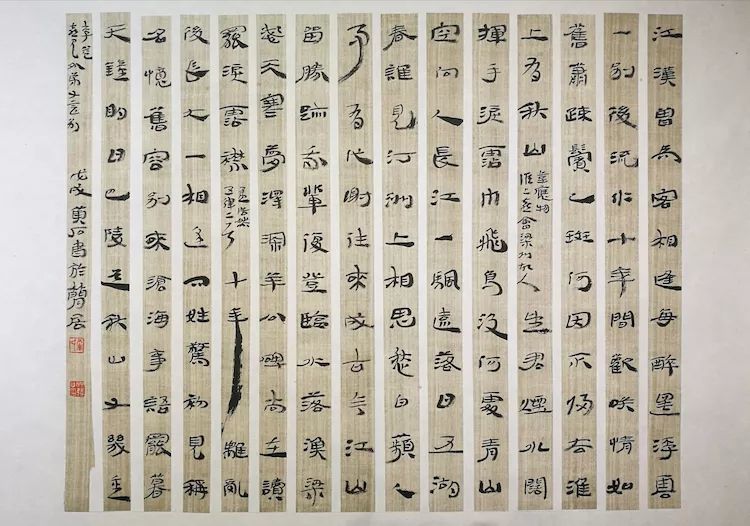 江漢曾為客相逢每醉還浮雲
一別後流水十年間歡咲情如
舊蕭疎鬢已斑何因不歸去淮
上有秋山 韋應物 淮上喜會梁州故人 望君煙水闊
揮手淚霑巾飛鳥沒何處青山
空向人長江一颿遠落日五湖
春誰見汀洲上相思愁白蘋人
事有代謝往來成古今江山
留勝跡我輩復登臨水落漁梁
淺天寒夢澤深羊公碑尚在讀
罷淚霑襟 孟浩然 十年離亂
後長大一相逢問姓驚初見稱
名憶舊容別來滄海事語罷暮
天鐘明日巴陵道秋山又幾重
李益
喜見外弟又言別 戊戌 黃石書於簡居